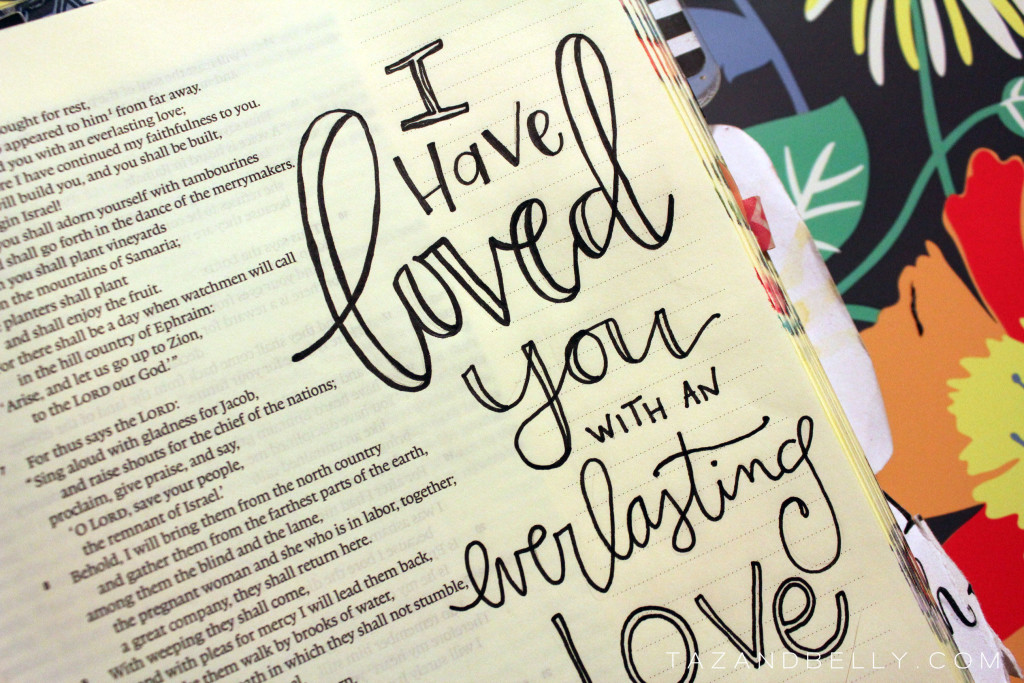 ought for rest,
appeared to him¹ from far away.
you with an everlasting love;
re I have continued my faithfulness to you.
will build you, and you shall be built,
gin Israel!
you shall adorn yourself with tambourines
shall go forth in the dance of the merrymakers.
you shall plant vineyards
the mountains of Samaria;
planters shall plant
and shall enjoy the fruit.
or there shall be a day when watchmen will call
in the hill country of Ephraim:
"Arise, and let us go up to Zion,
to the LORD our God.'"
7 For thus says the LORD:
"Sing aloud with gladness for Jacob,
and raise shouts for the chief of the nations;
proclaim, give praise, and say,
'O LORD, save your people,
the remnant of Israel.'
8 Behold, I will bring them from the north country
and gather them from the farthest parts of the earth,
among them the blind and the lame,
the pregnant woman and she who is in labor, together;
a great company, they shall return here.
With weeping they shall come,
and with pleas for mercy I will lead them back,
them walk by brooks of water,
path in which they shall not stumble,
I
Have
loved
you
WITH AN
everlasting
love
TAZANDBELLY.COM